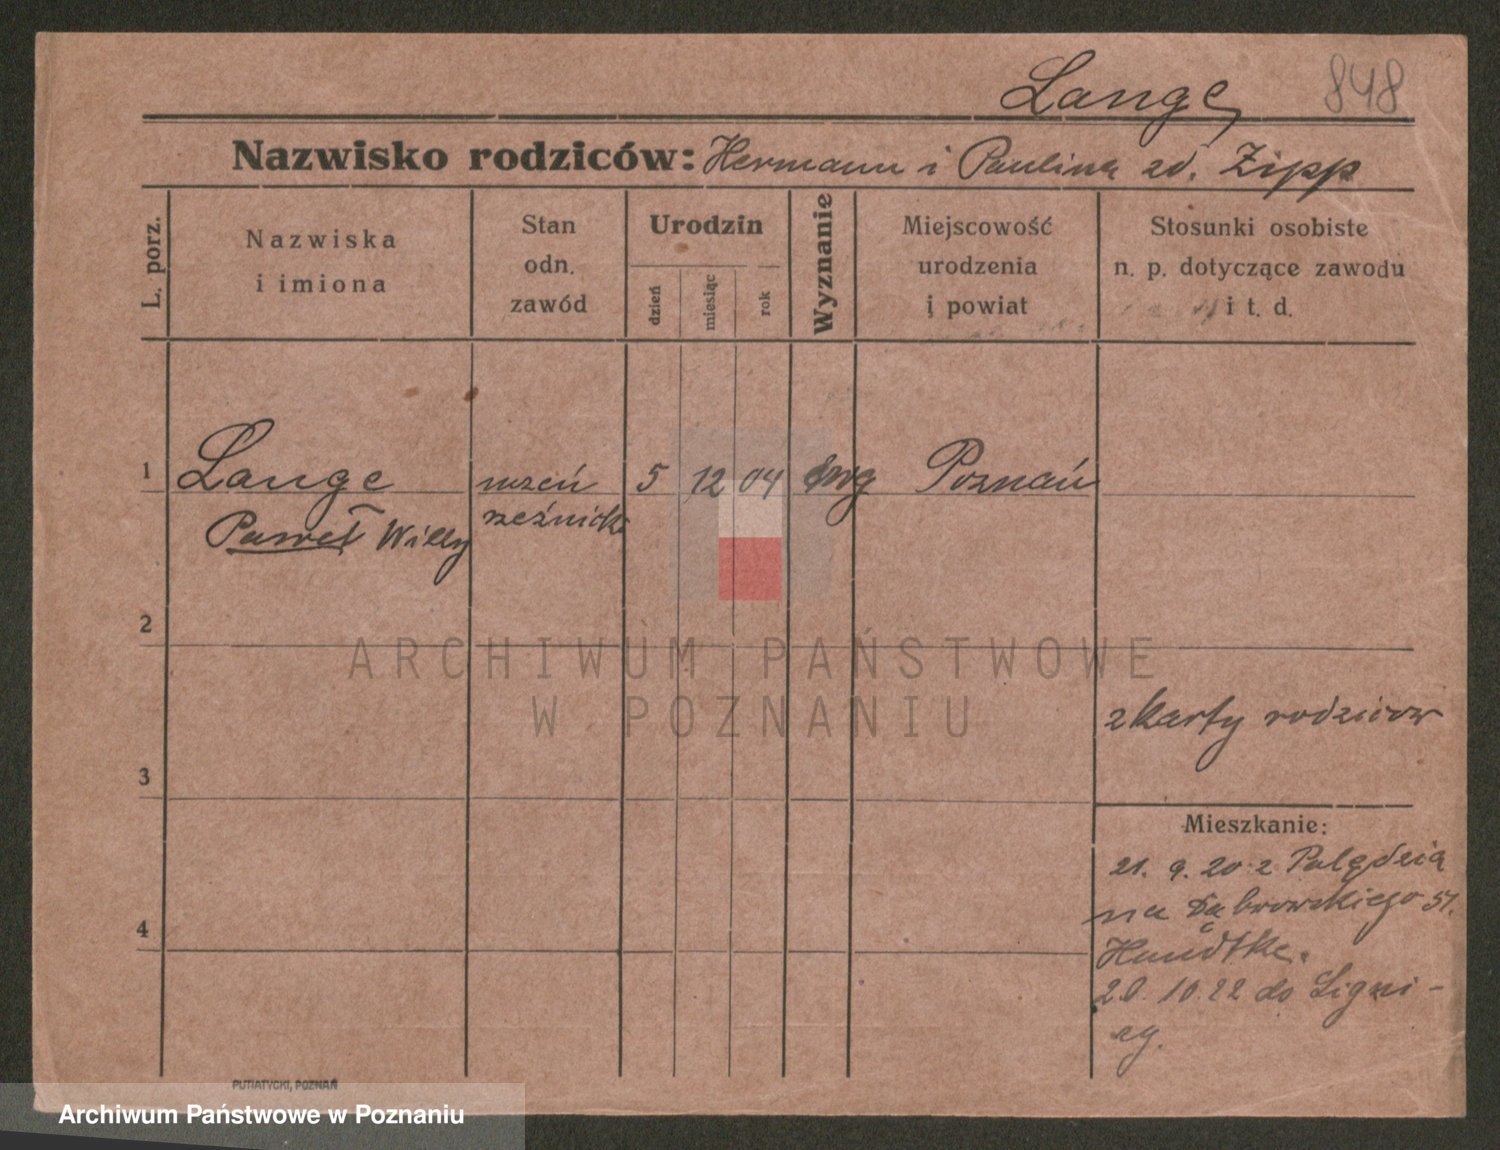 Lange 848
Nazwisko rodziców: Hermann i Paulina zd. Zipp
L. porz.
Nazwiska
i imiona
Stan
odn.
zawód
Urodzin
dzień
miesiąc
rok
Wyznanie
Miejscowość
urodzenia
i powiat
Stosunki osobiste
n. p. dotyczące zawodu
i t. d.
1 Lange uczeń 5 12 04 ewg Poznań
Paweł Willy rzeźnicki
2
z karty rodziców
3
Mieszkanie:
21. 9. 20 z Palędzia
na Dąbrowskiego 51.
4
20. 10. 22 do Ligni-
cy.
PUTIATYCKI, POZNAŃ
ARCHIWUM PAŃSTWOWE
W POZNANIU
Archiwum Państwowe w Poznaniu